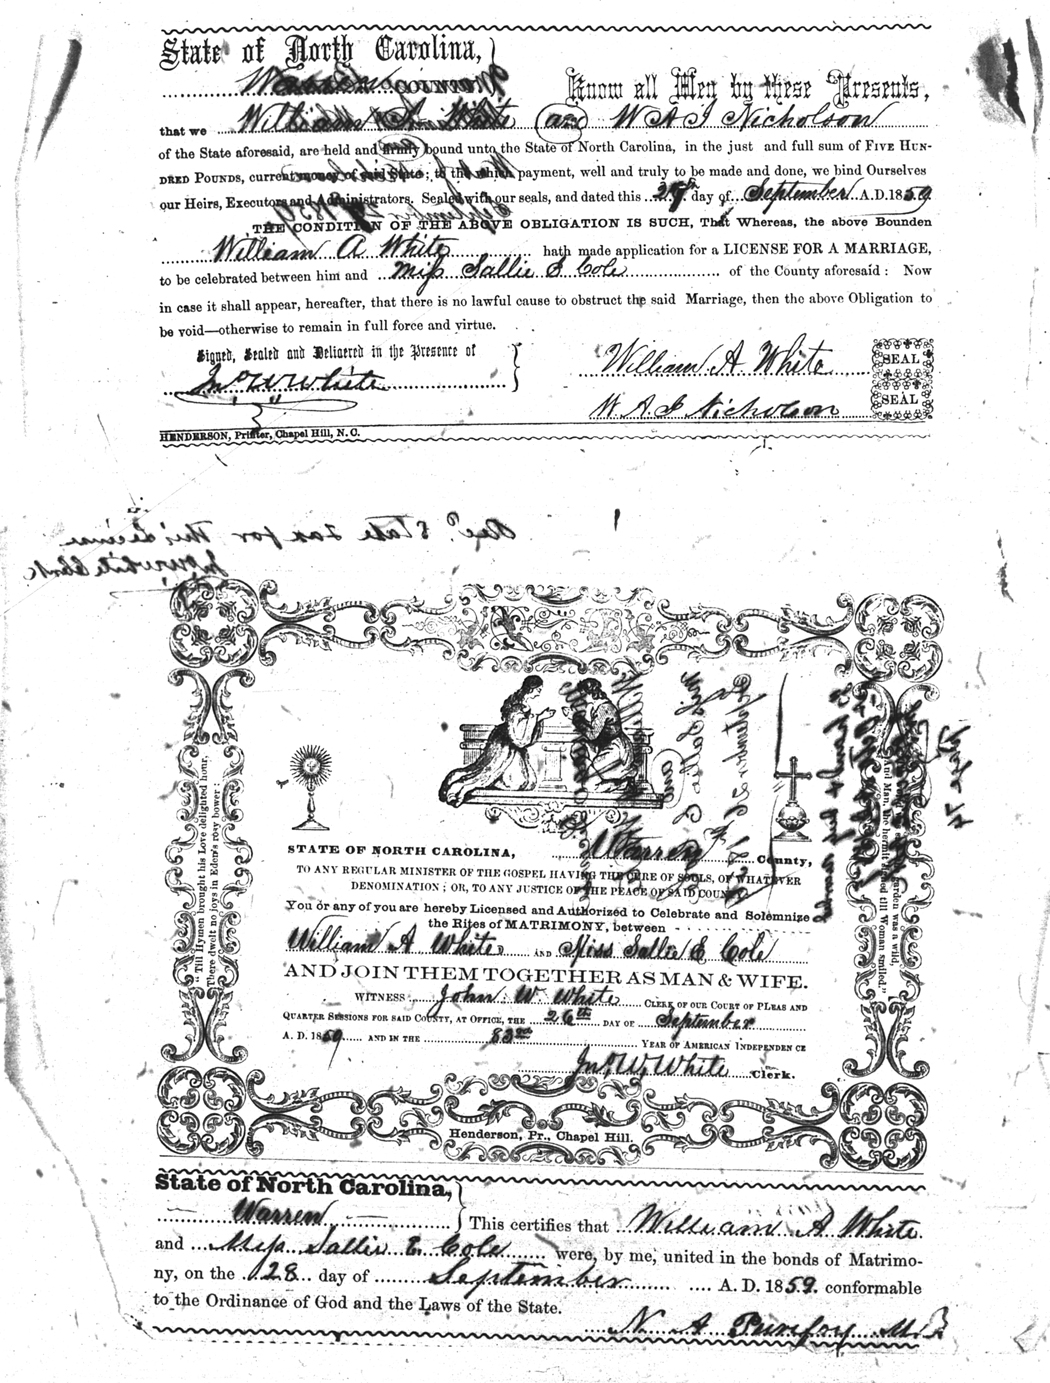 State of North Carolina,
Warren
Know all Men by these Presents,
that we William A White and W A J Nicholson
of the State aforesaid, are held and firmly bound unto the State of North Carolina, in the just and full sum of FIVE HUN-
DRED POUNDS, current money of said State; to the which payment, well and truly to be made and done, we bind Ourselves
our Heirs, Executors and Administrators. Sealed with our seals, and dated this 26th day of September A.D. 1859
THE CONDITION OF THE ABOVE OBLIGATION IS SUCH, That Whereas, the above Bounden
William A White hath made application for a LICENSE FOR A MARRIAGE,
to be celebrated between him and Miss Sallie E Cole of the County aforesaid: Now
in case it shall appear, hereafter, that there is no lawful cause to obstruct the said Marriage, then the above Obligation to
be void—otherwise to remain in full force and virtue.
Signed, Sealed and Delivered in the Presence of
Jno W White
William A White SEAL
W. A. J Nicholson SEAL
HENDERSON, Printer, Chapel Hill, N. C.
Recd State Tax for This License
Jno W White Clerk
"Till Hymen brought his Love delighted hour,
There dwelt no joys in Eden's rosy bower:
STATE OF NORTH CAROLINA, Warren County,
TO ANY REGULAR MINISTER OF THE GOSPEL HAVING THE CURE OF SOULS, OF WHATEVER
DENOMINATION; OR, TO ANY JUSTICE OF THE PEACE OF SAID COUNTY
You or any of you are hereby Licensed and Authorized to Celebrate and Solemnize
the Rites of MATRIMONY, between
William A White AND Miss Sallie E Cole
AND JOIN THEM TOGETHER AS MAN & WIFE.
WITNESS John W. White CLERK OF OUR COURT OF PLEAS AND
QUARTER SESSIONS FOR SAID COUNTY, AT OFFICE, THE 26th DAY OF September
A. D. 1859 AND IN THE 83rd YEAR OF AMERICAN INDEPENDENCE
Jno. W. White Clerk.
garden was a wild,
And Man, the hermit sighed till Woman smiled."
Henderson, Pr., Chapel Hill.
State of North Carolina,
Warren This certifies that William A White
and Miss Sallie E Cole were, by me, united in the bonds of Matrimo-
ny, on the 28 day of September A. D. 1859. conformable
to the Ordinance of God and the Laws of the State.
N A Purefoy M.G